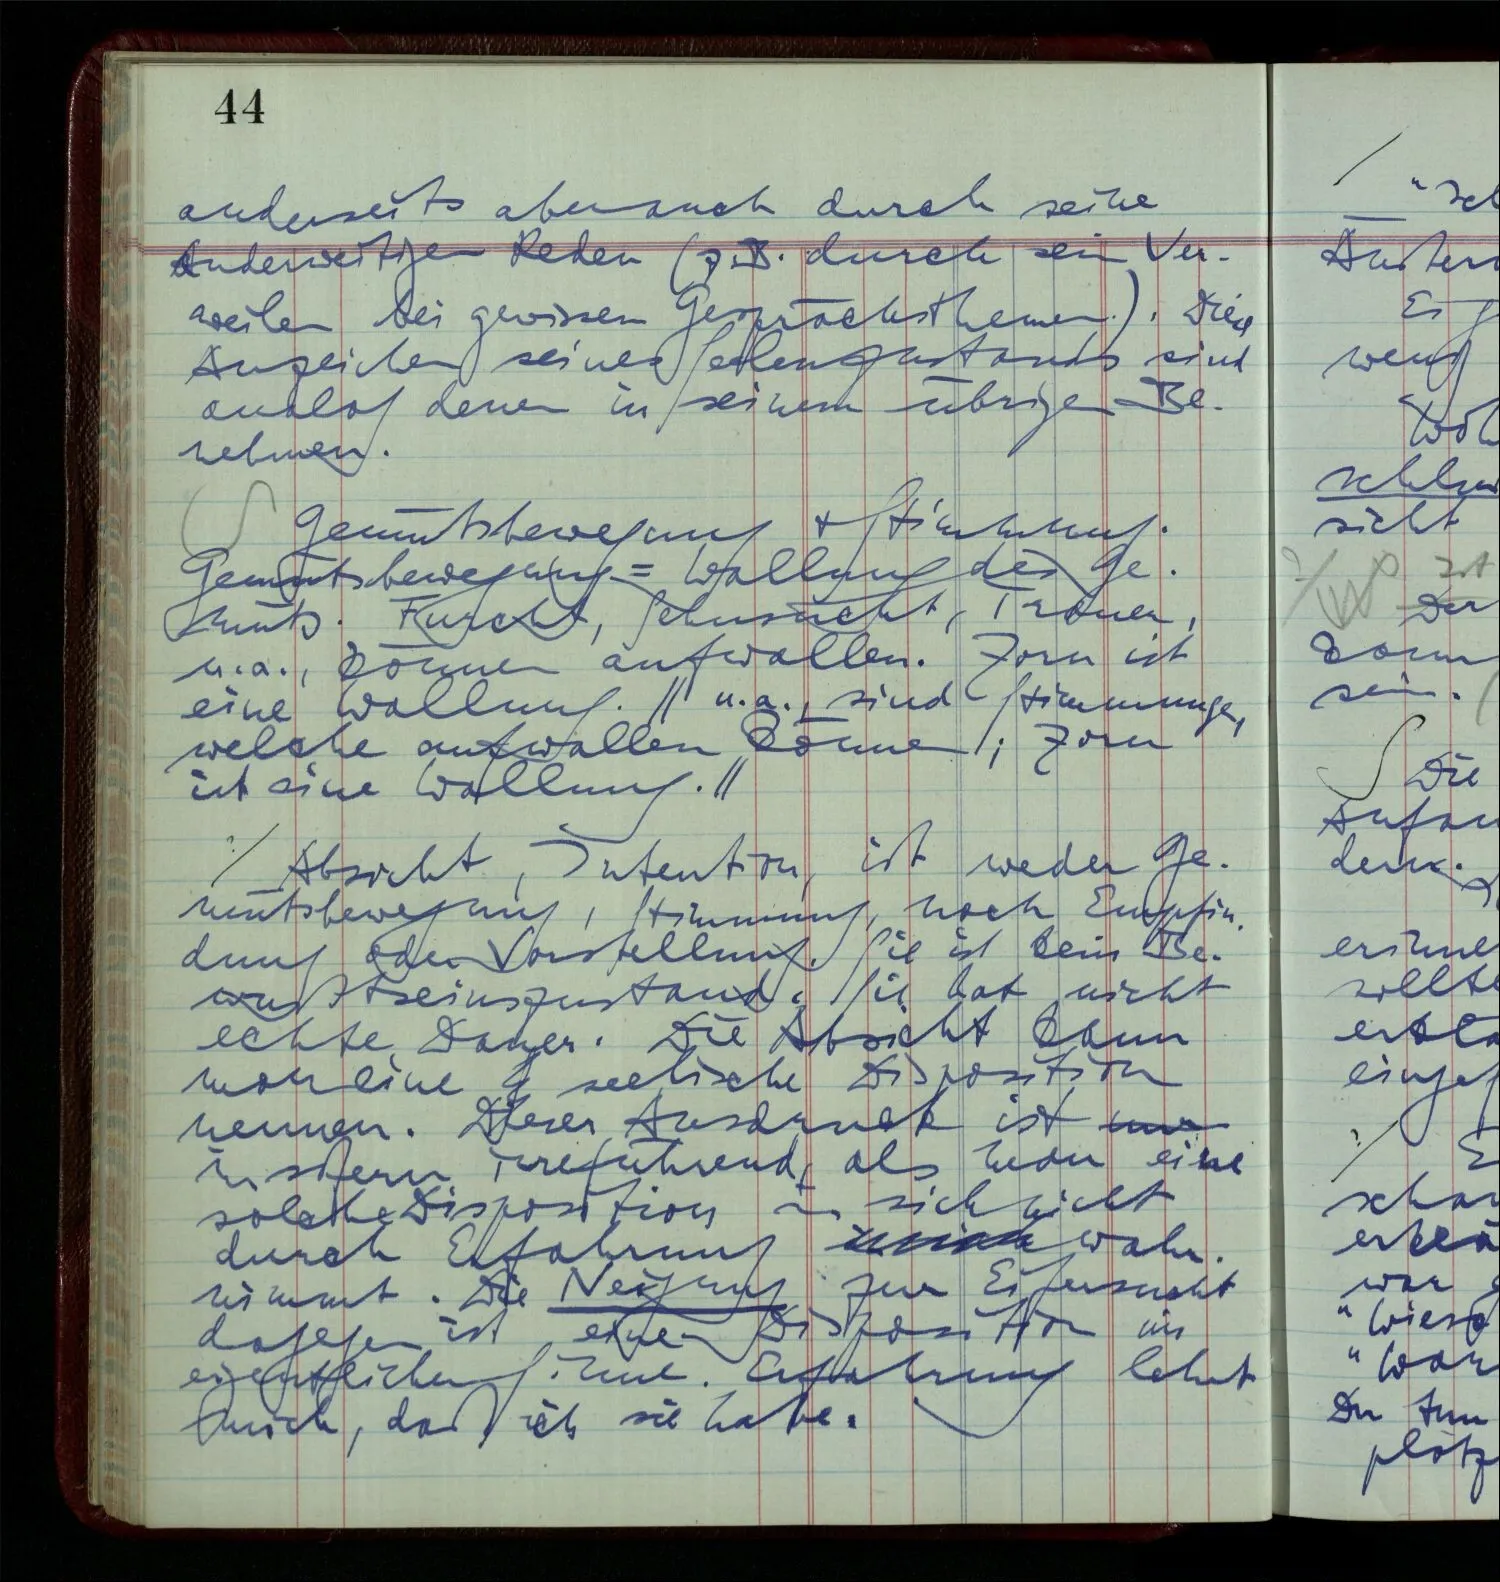 44
anderseits aber auch durch seine
anderweitigen Reden (z.B. durch sein Ver-
weilen bei gewissen Gesprächsthemen). Diese
Anzeichen seines Seelenzustands sind
analog denen in seinem übrigen Be-
nehmen.
∫ Gemütsbewegung + Stimmung.
Gemütsbewegung = Wallung des Ge-
müts. Furcht, Sehnsucht, Trauer,
u.a., können aufwallen. Zorn ist
eine Wallung. // u.a., sind Stimmungen,
welche aufwallen können; Zorn
ist eine Wallung. //
?/ Absicht, Intention, ist weder Ge-
mütsbewegung, Stimmung, noch Empfin-
dung oder Vorstellung. Sie ist kein Be-
wußtseinszustand. Sie hat nicht
echte Dauer. Die Absicht kann
man eine seelische Disposition
nennen. Dieser Ausdruck ist
insofern irreführend, als man eine
solche Disposition in sich nicht
durch Erfahrung wahr-
nimmt. Die Neigung zur Eifersucht
dagegen ist eine Disposition im
eigentlichen Sinne. Erfahrung lehrt
mich, daß ich sie habe.
/
"Sch
Äußern
Es g
weng
schlum
sicht
?/
Ist
Der
kann
sein. (
∫ Die
Anfan
denk.
erinne
sollte
erkla
eingef
?/ E
schau
erklä
war g
"Wies
"War
Du tun
plötz